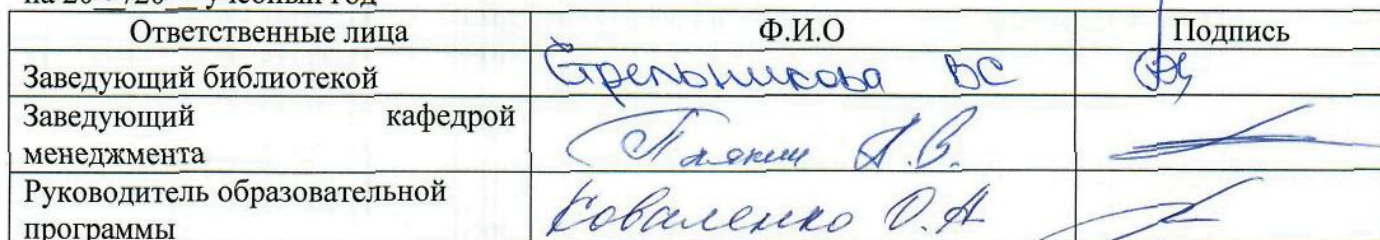 на 20 /20 учебный год
Ответственные лица Ф.И.О Подпись
Заведующий библиотекой Стрельникова ВС
Заведующий кафедрой
менеджмента А.В.
Руководитель образовательной
программы Коваленко О.А